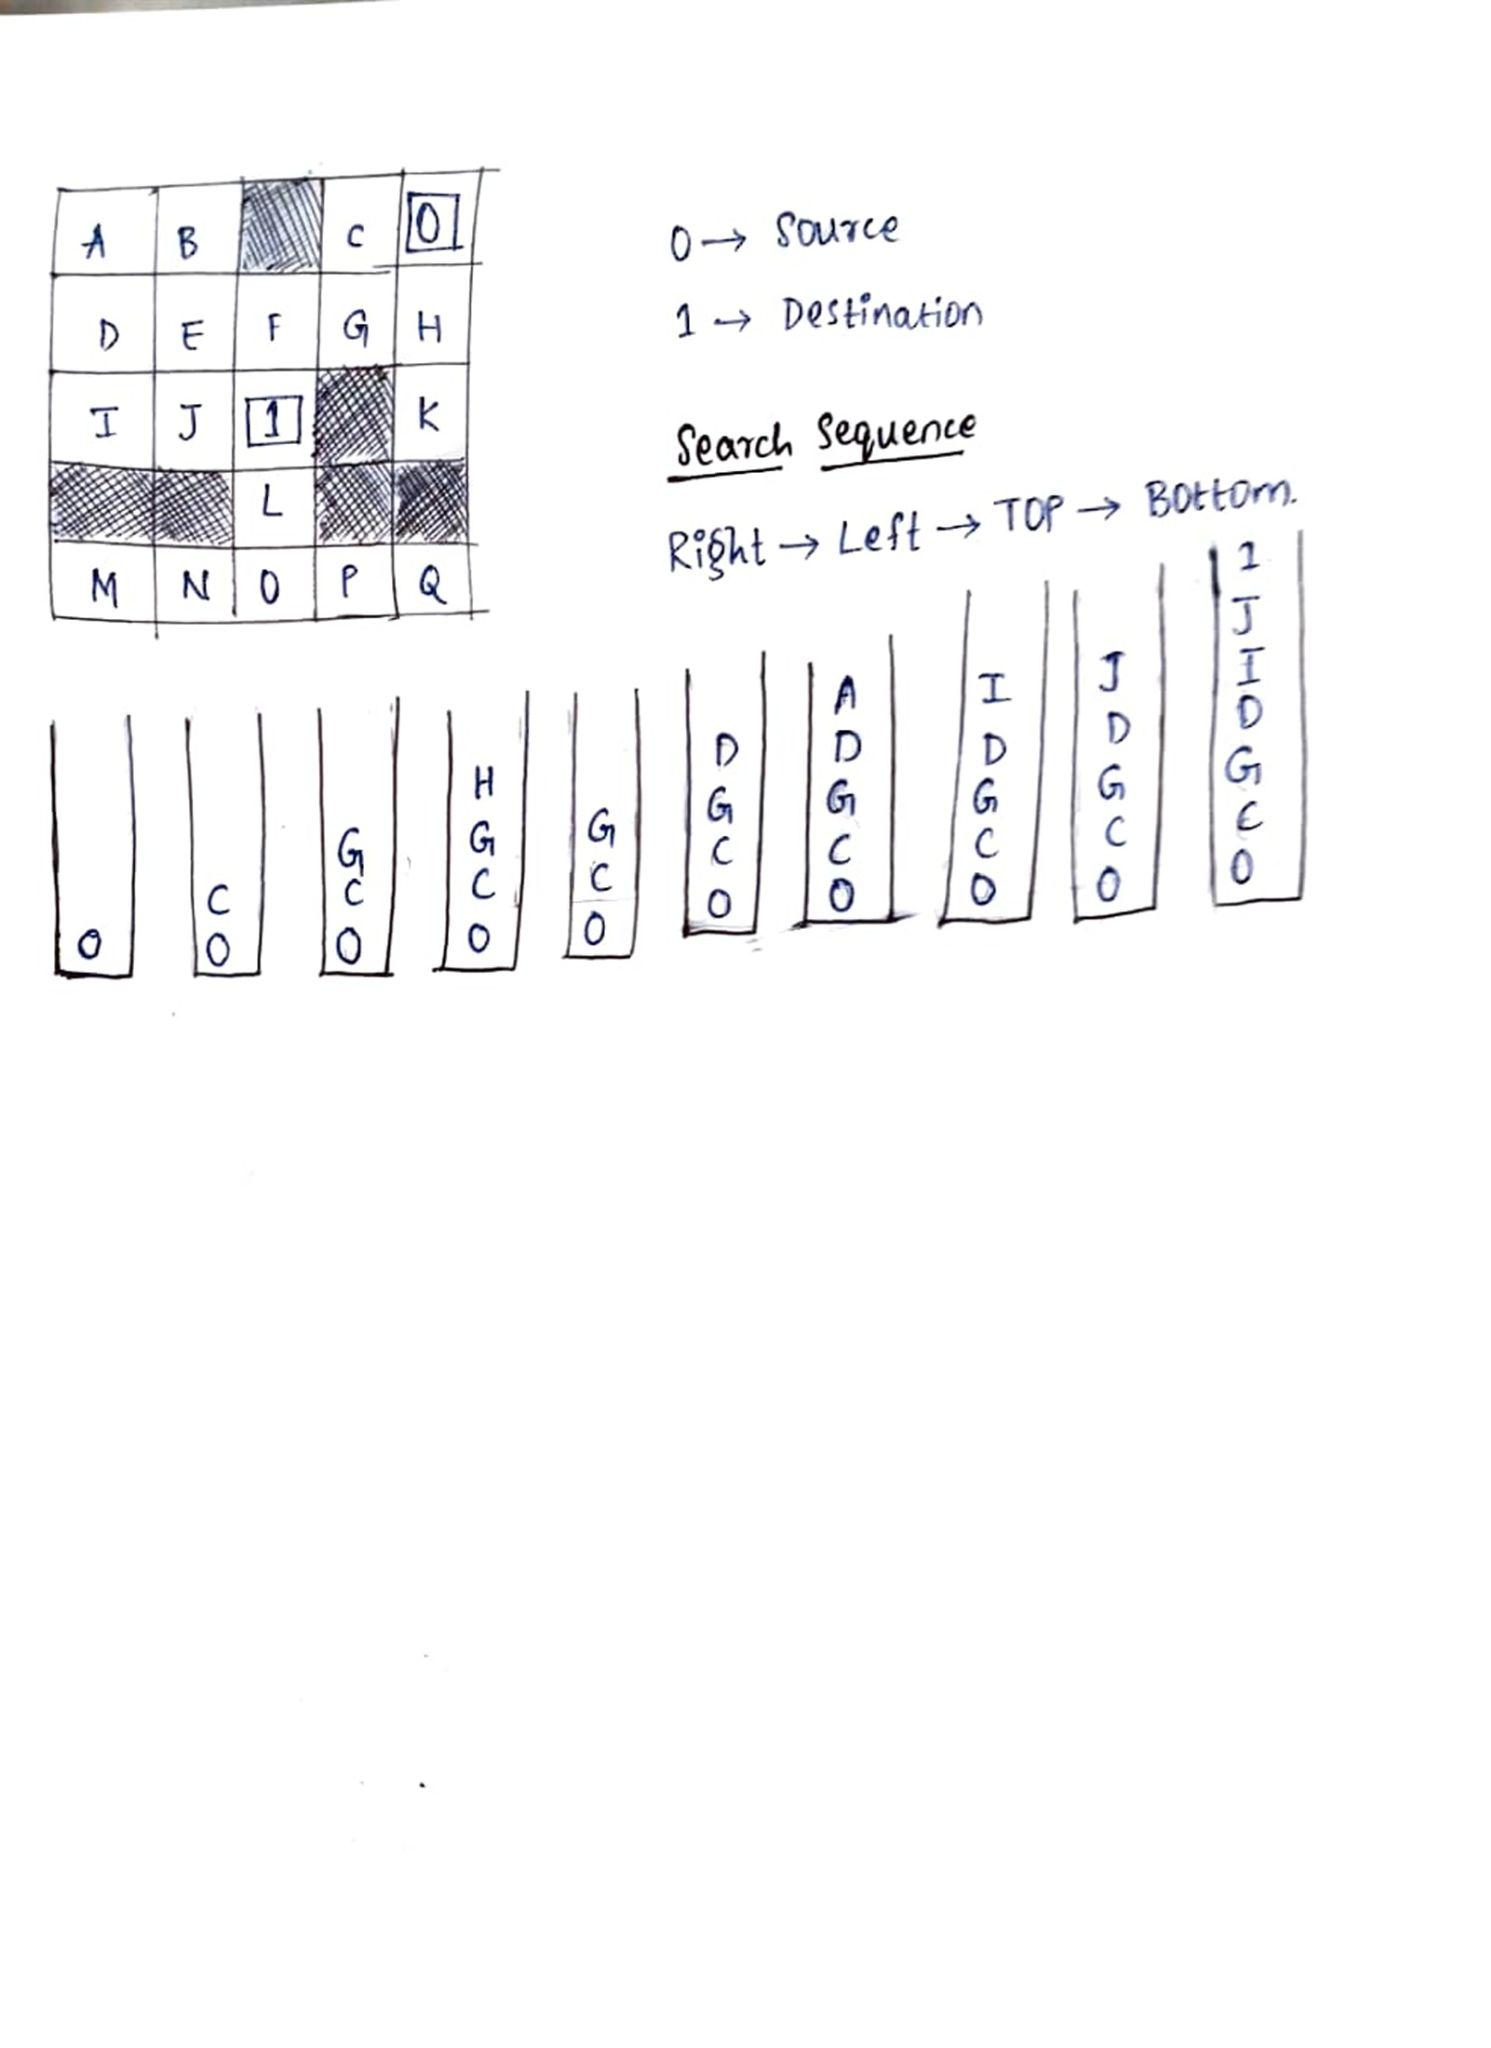 A B C 0
D E F G H
I J 1 K
L
M N O P Q
0 → Source
1 → Destination
Search Sequence
Right → Left → TOP → Bottom.
0
C
0
G
C
0
H
G
C
0
G
C
0
D
G
C
0
A
D
G
C
0
I
D
G
C
0
J
D
G
C
0
1
J
I
D
G
C
0